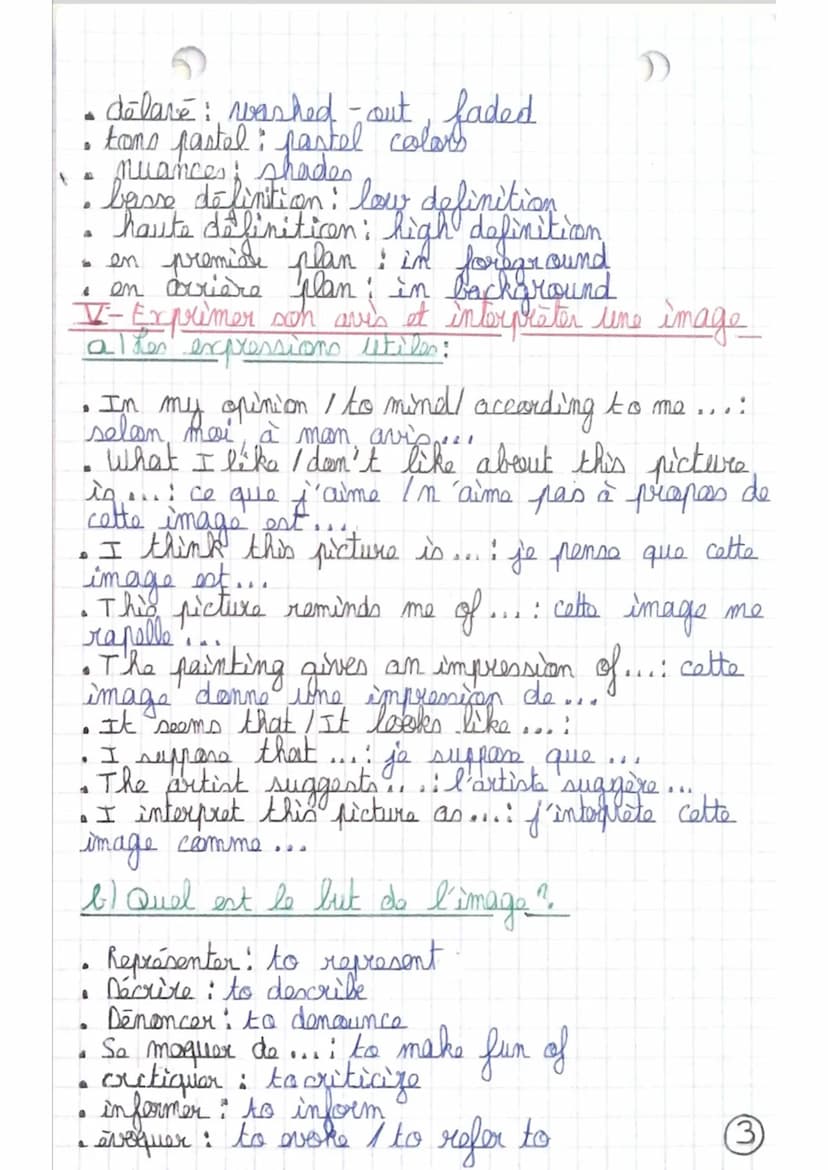 • délavé : washed-out, faded
• tons pastel : pastel colors
• nuances : shades
• basse définition : low definition
• haute définition : high definition
• en premier plan : in foreground
• en arrière plan : in background
V- Exprimer son avis et interpréter une image
a) Les expressions utiles :
• In my opinion / to mind / according to me ... :
selon moi, à mon avis...
• What I like / don't like about this picture
is ... : ce que j'aime / n'aime pas à propos de
cette image est...
• I think this picture is ... : je pense que cette
image est...
• This picture reminds me of ... : cette image me
rapelle ...
• The painting gives an impression of... : cette
image donne une impression de ...
• It seems that / It looks like ... :
• I suppose that ... : je suppose que ...
• The artist suggests... : l'artiste suggère ...
• I interpret this picture as ... : j'interprète cette
image comme ...
b) Quel est le but de l'image ?
• Représenter : to represent
• Décrire : to describe
• Dénoncer : to denounce
• Se moquer de ... : to make fun of
• critiquer : to criticize
• informer : to inform
• évoquer : to evoke / to refer to
3